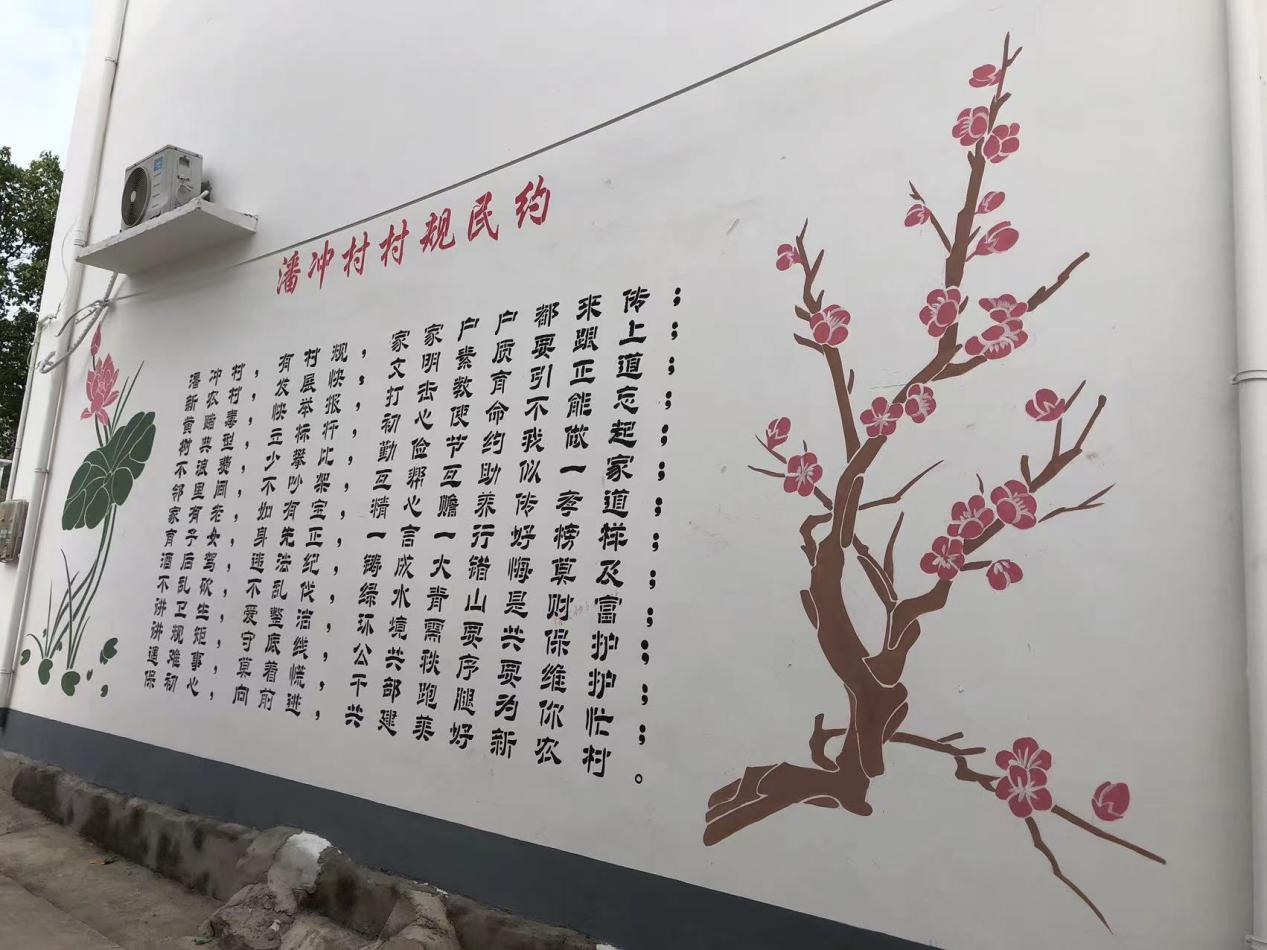 潘冲村村规民约
潘冲村，有村规，家家户户都来传；
新农村，发展快，文明素质要跟上；
黄赌毒，快举报，打击教育引正道；
树典型，立标杆，初心使命不能忘；
不浪费，少攀比，勤俭节约我做起；
邻里间，不吵架，互帮互助似一家；
家有老，如有宝，精心赡养传孝道；
育子女，身先正，一言一行好榜样；
酒后驾，逃法纪，一铸成大错悔莫及；
不乱砍，不乱伐，绿水青山是财富；
讲卫生，爱整洁，环境需要共保护；
讲规矩，守底线，公共秩序要维护；
遇难事，莫着慌，干部跑腿为你忙；
保初心，向前进，共建美好新农村。